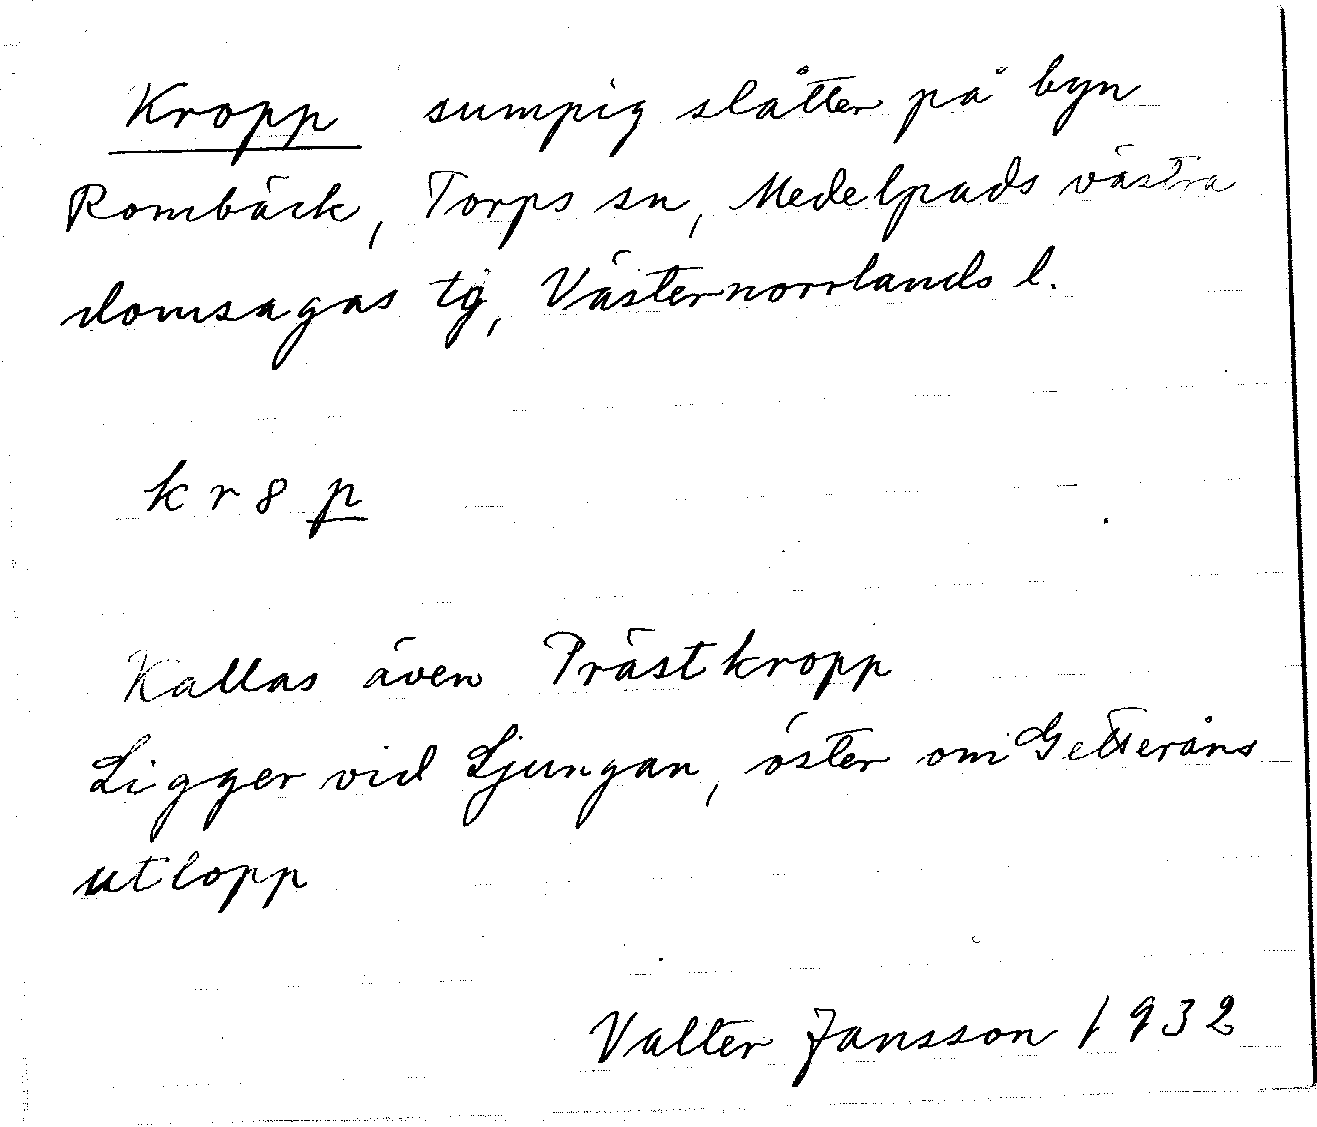 Kropp sumpig slåtter på byn
Rombäck, Torps sn, Medelpads västra
domsagas tg, Västernorrlands l.
kr8p
Kallas även Prästkropp
Ligger vid Ljungan, öster om Getteråns
utlopp
Valter Jansson 1932